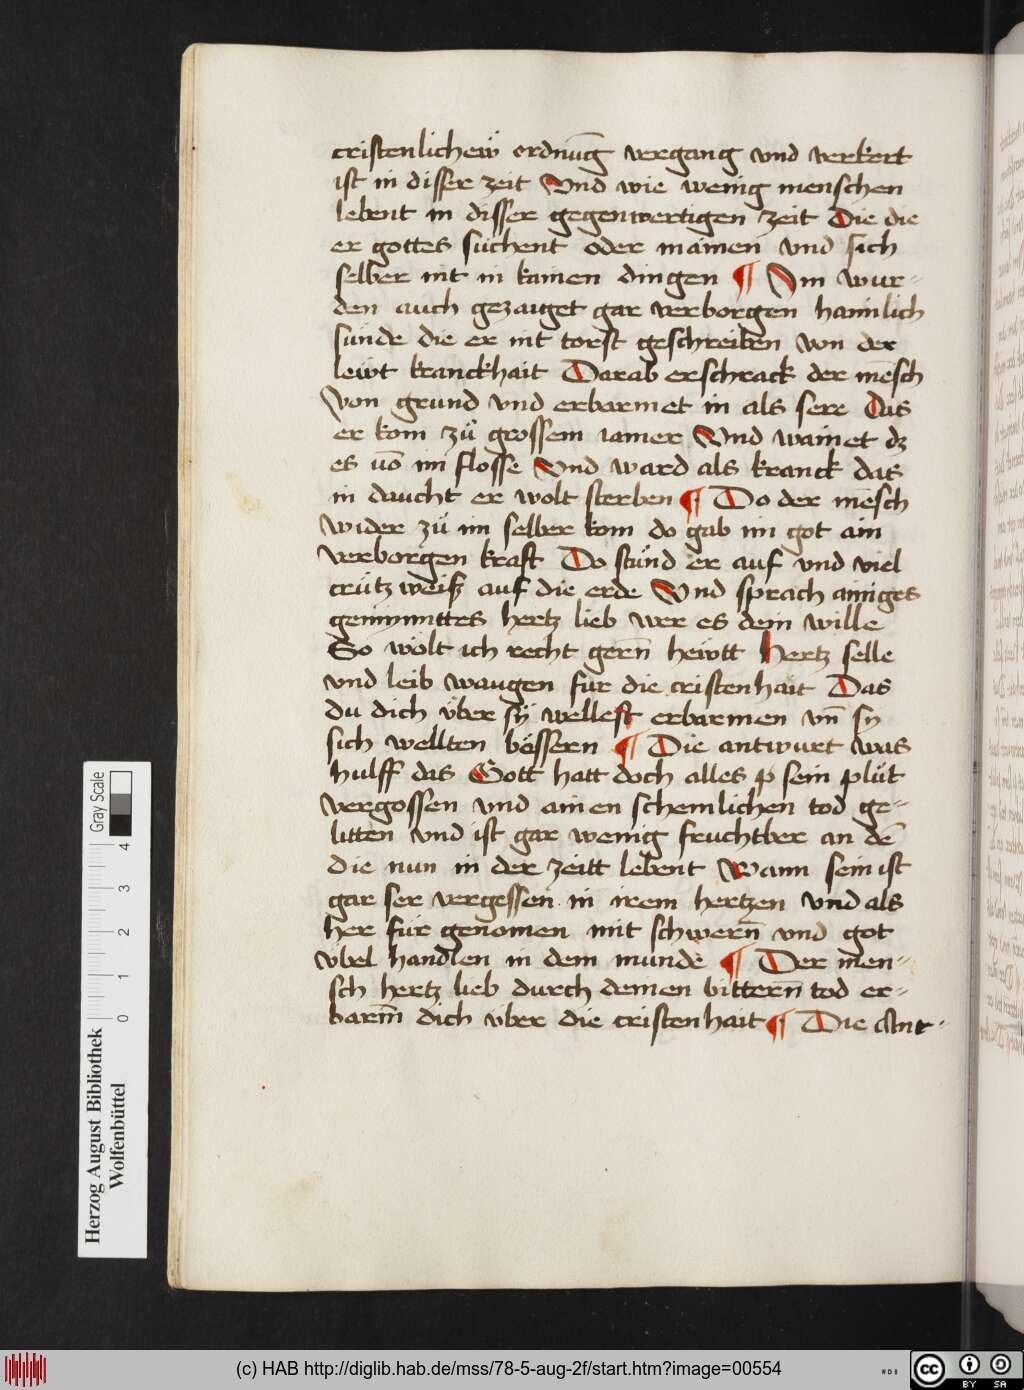 cristenlichew̋ ordnu̅g vergang vnd verkert
ist in disser zeit Vnd wie wenig menschen
lebent in disser gegenwertigen zeit Die die
er gottes suͤchent oder mainen vnd sich
selber nit in kainen dingen ¶ Im wur-
den auch gezaiget gar verborgen haimlich
sünde die er nit torst geschreiben von der
lewt kranckhait Darab erschrack der me̅sch
von grund vnd erbarmet in als sere Das
er kom zuͦ grossem iamer Vnd wainet dz
es vo̅ im flosse Vnd ward als kranck das
in daucht er wolt sterben ¶ Do der me̅sch
wider zuͦ im selber kom do gab im got ain
verborgen kraft Do stuͦnd er auf vnd viel
crützweisz auf die erde Vnd sprach ainiges
geminnttes hertz lieb wer es dein wille
So wölt ich recht gern̅ hewtt Hertz selle
vnd leib waugen für die cristenhait Das
du dich über sÿ wellest erbarmen vn̅ sy
sich wellten bössern ¶ Die antwurt was
hulff das Gott hatt doch alles p sein pluͦt
vergossen vnd ainen schemlichen tod ge-
litten vnd ist gar wenig fruchtber an de̅
die nun in der zeitt lebent Wann sein ist
gar ser vergessen in irem hertzen vnd als
her für genomen mit schwern̅ vnd got
übel handlen in dem munde ¶ Der men-
sch hertz lieb durch deinen bittern̅ tod er-
barm̅ dich über die cristenhait ¶ Die Ant-
Herzog August Bibliothek
Wolfenbüttel
Gray Scale
0 1 2 3 4
(c) HAB http://diglib.hab.de/mss/78-5-aug-2f/start.htm?image=00554
WDB
cc BY SA